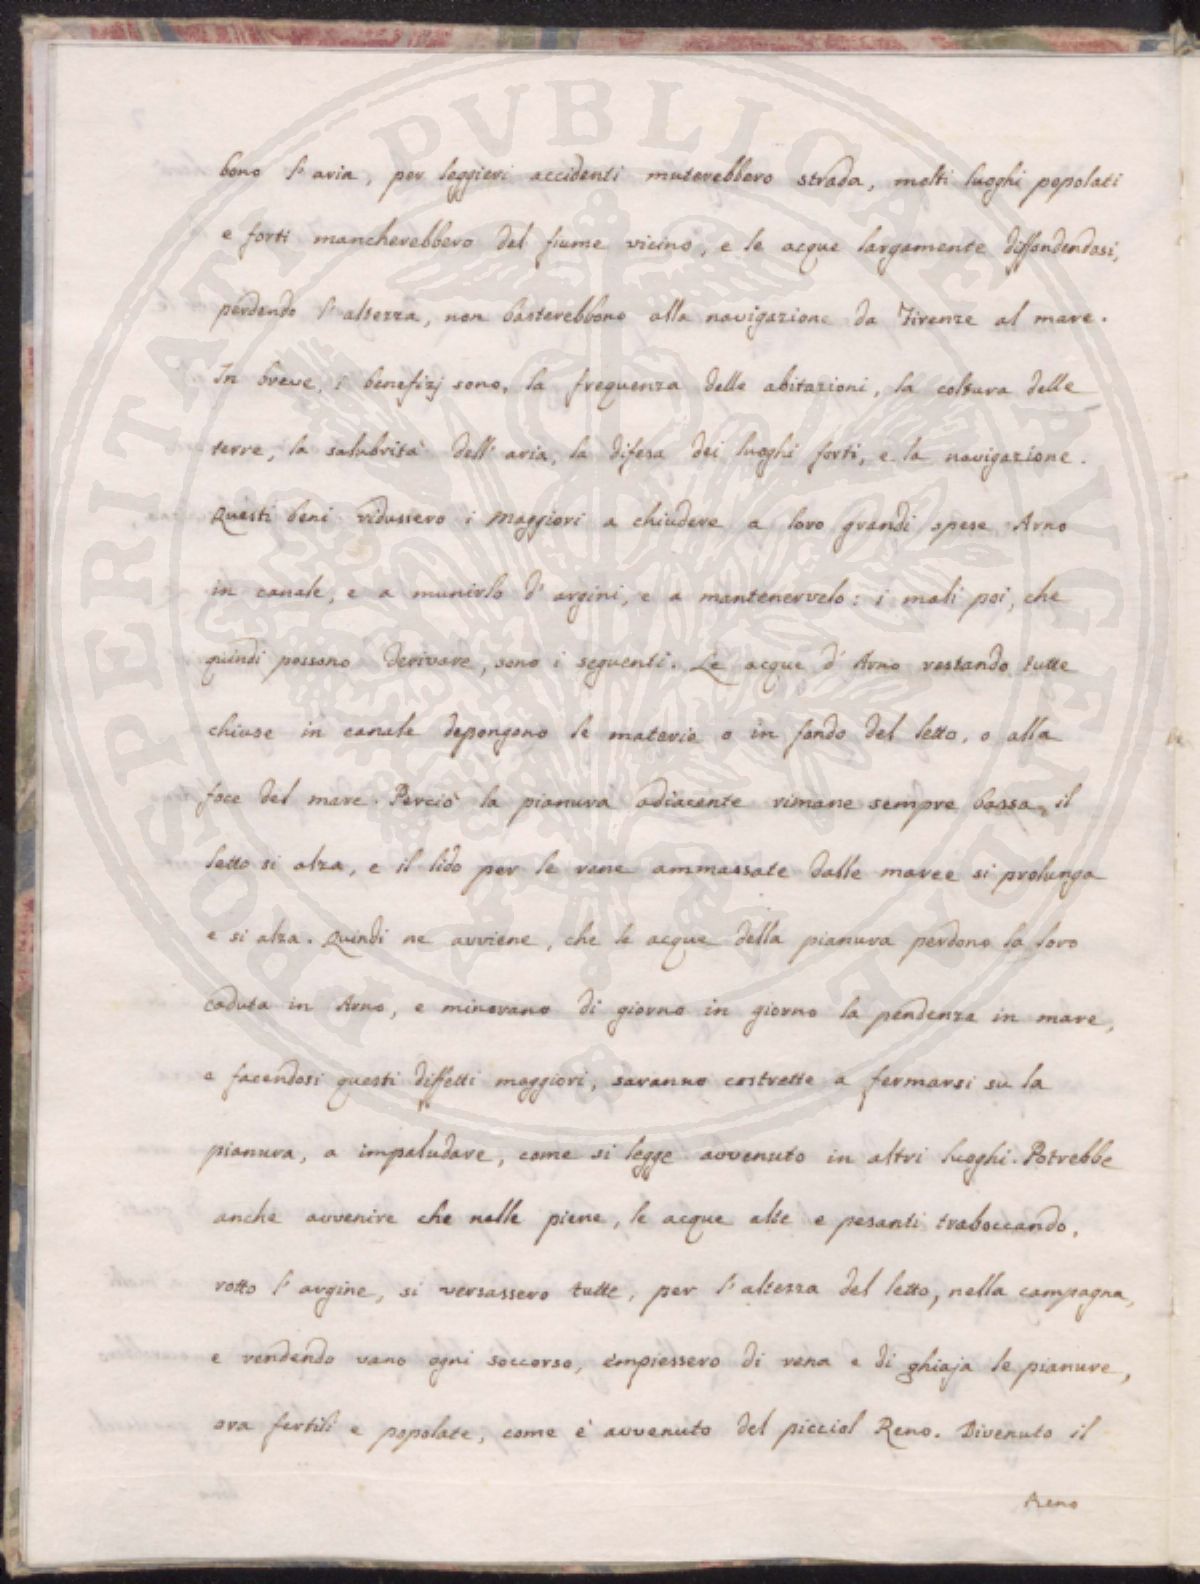 bono l'aria, per leggieri accidenti muterebbero strada, molti luoghi popolati
e forti mancherebbero del fiume vicino, e le acque largamente diffondendosi,
perdendo l'altezza, non basterebbono alla navigazione da Firenze al mare.
In breve, i benefizj sono, la frequenza delle abitazioni, la coltura delle
terre, la salubrità dell'aria, la difesa dei luoghi forti, e la navigazione.
Questi beni ridussero i Maggiori a chiudere a loro grandi spese Arno
in canale, e a munirlo d'argini, e a mantenervelo: i mali poi, che
quindi possono derivare, sono i seguenti. Le acque d'Arno restando tutte
chiuse in canale depongono le materie o in fondo del letto, o alla
foce del mare. Perciò la pianura adiacente rimane sempre bassa, il
letto si alza, e il lido per le rane ammassate dalle maree si prolunga
e si alza. Quindi ne avviene, che le acque della pianura perdono la loro
caduta in Arno, e minorano di giorno in giorno la pendenza in mare,
e facendosi questi diffetti maggiori, saranno costrette a fermarsi su la
pianura, a impaludare, come si legge avvenuto in altri luoghi. Potrebbe
anche avvenire che nelle piene, le acque alte e pesanti traboccando,
rotto l'argine, si versassero tutte, per l'altezza del letto, nella campagna,
e rendendo vano ogni soccorso, empiessero di rena e di ghiaja le pianure,
ora fertili e popolate, come è avvenuto del picciol Reno. Divenuto il
Reno
PUBLICAE
PROSPERITATI